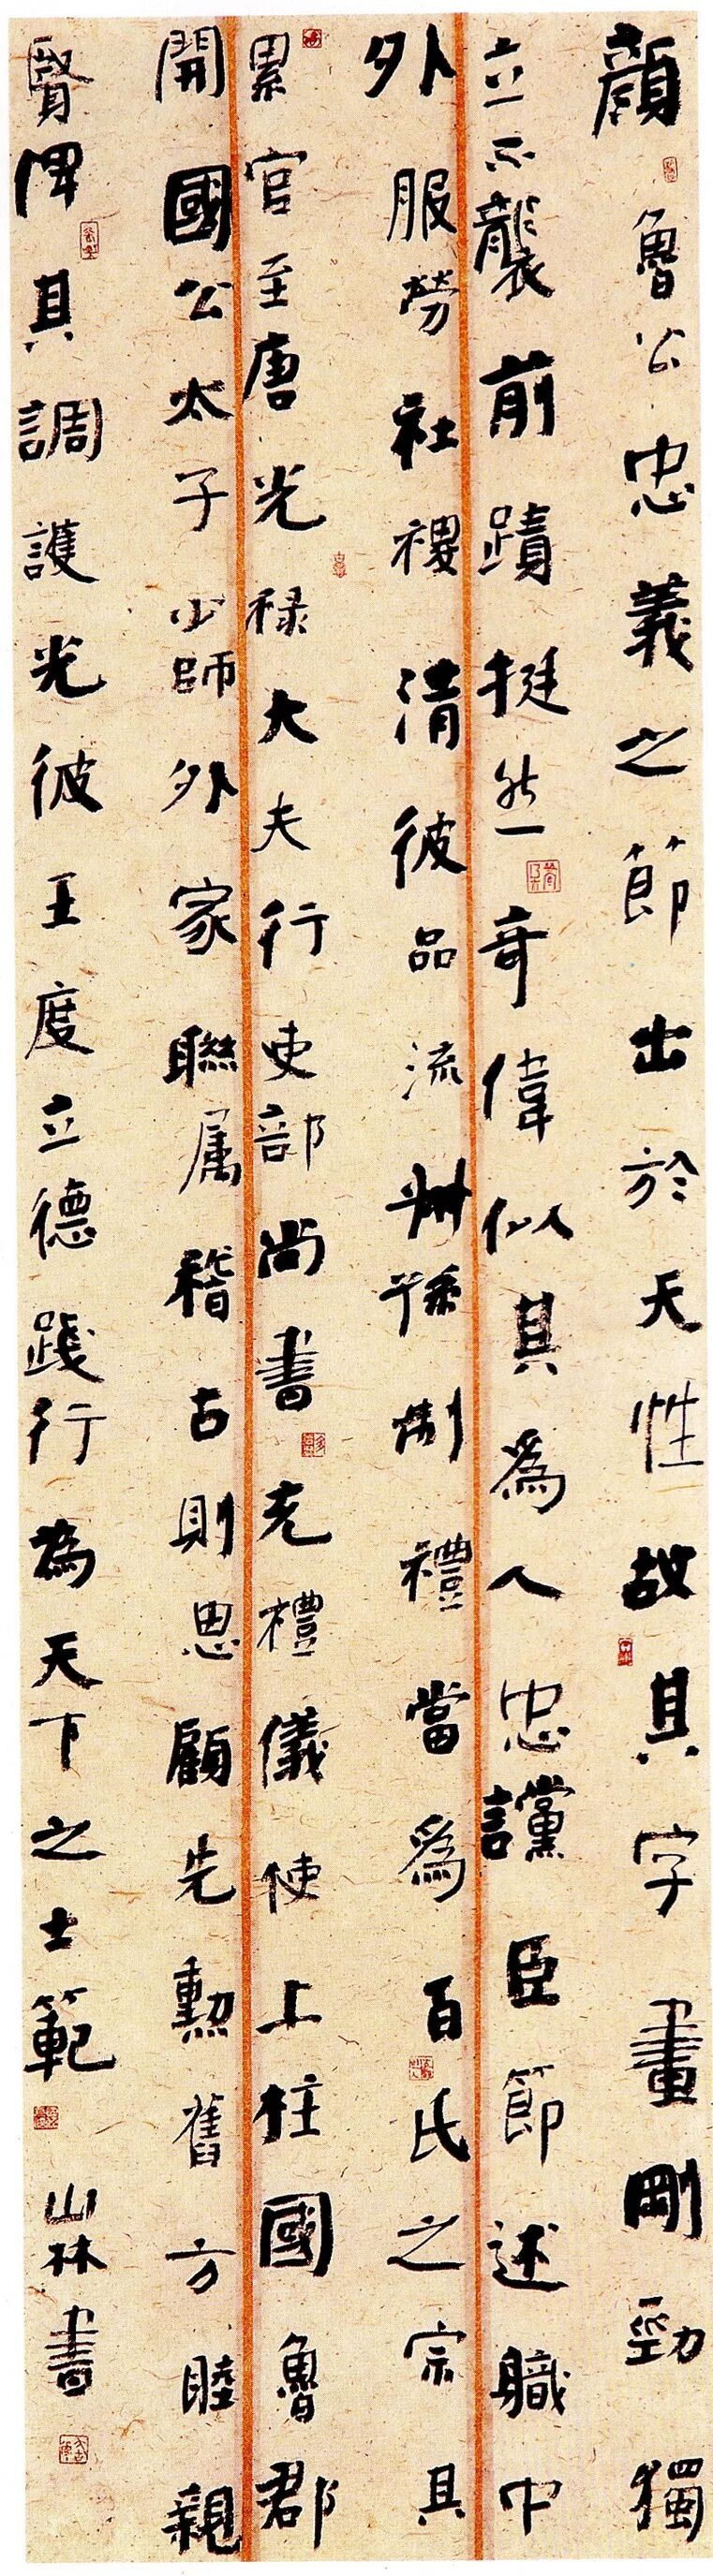 顏魯公忠義之節出於天性故其字畫剛勁獨
立不襲前蹟挺然奇偉似其為人忠讜臣節述職中
外服勞社稷清彼品流㪅孫制禮當為百氏之宗其
累官至唐光禄大夫行吏部尚書充禮儀使上柱國魯郡
開國公太子少師外家聯属稽古則思顧先勲舊方睦親
賢俾其調護光彼王度立德踐行為天下之士範
山林書